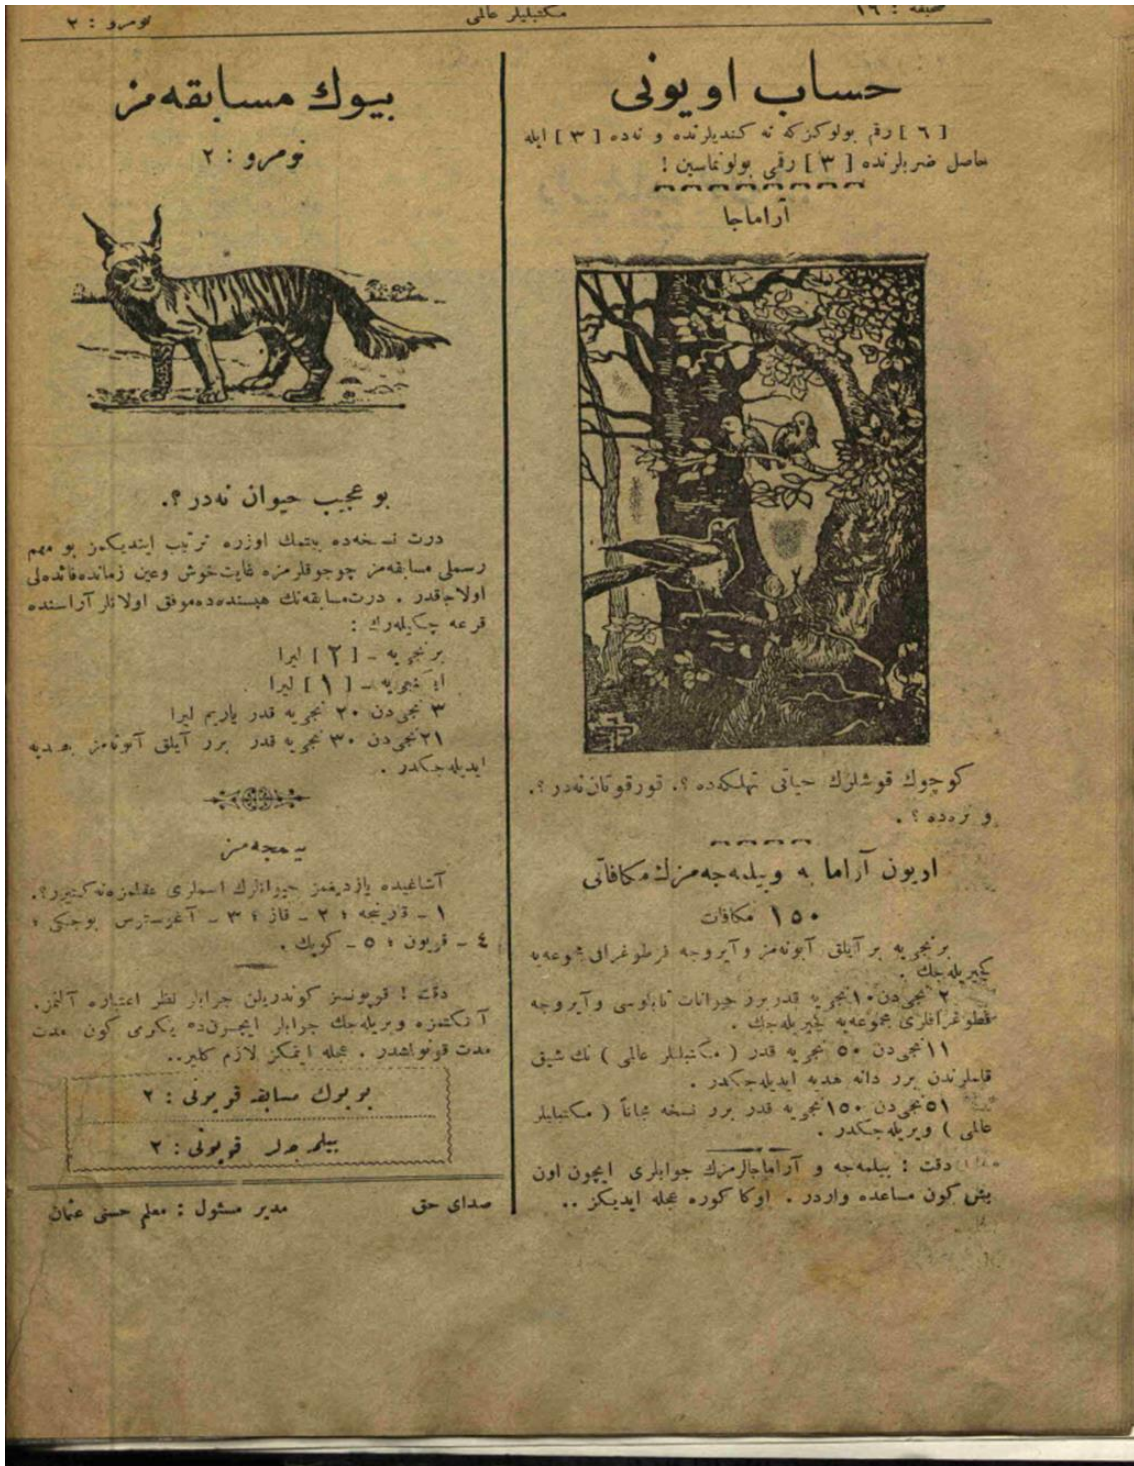 صحيفه : ١٦
مكتبليلر عالمى
نومرو : ٢
حساب اويونى
[ ٦ ] رقم بولوكزكه نه كنديلرنده و نه‌ده [ ٣ ] ايله
حاصل ضربلرنده [ ٣ ] رقمى بولونماسين !
آراماجا
كوچوك قوشلرك حياتى تهلكه‌ده ؟. قورقوتان نه‌در ؟.
و نره‌ده ؟ .
اويون آراما به وبيلمه‌جه‌مزك مكافاتى
١٥٠ مكافات
برنجى‌يه بر آيلق آبونه‌مز و آيروجه فوطوغرافى مجموعه‌يه
كچيريله‌جك .
٢ نجى‌دن ١٠ نجى‌يه قدر برر حيوانات تابلوسى و آيروجه
فطوغرافلرى مجموعه‌يه كچيريله‌جك .
١١ نجى‌دن ٥٠ نجى‌يه قدر ( مكتبليلر عالمى ) نك شيق
قلملرندن برر دانه هديه ايديله‌جكدر .
٥١ نجى‌دن ١٥٠ نجى‌يه قدر برر نسخه مجاناً ( مكتبليلر
عالمى ) ويريله‌جكدر .
دقت : بيلمه‌جه و آراماجالرمزك جوابلرى ايچون اون
بش كون مساعده واردر . اوكا كوره عجله ايديكز ..
بيوك مسابقه‌مز
نومرو : ٢
بو عجيب حيوان نه‌در ؟.
درت نسخه‌ده بيتمك اوزره ترتيب ايتديكمز بو مهم
رسملى مسابقه‌مز چوجوقلرمزه غايت خوش وعين زمانده فائده‌لى
اولاجاقدر . درت مسابقه‌نك هپسنده‌ده موفق اولانلر آراسنده
قرعه چكيله‌رك :
برنجى‌يه ـ [ ٢ ] ليرا
ايكنجى‌يه ـ [ ١ ] ليرا
٣ نجى‌دن ٢٠ نجى‌يه قدر ياريم ليرا
٢١ نجى‌دن ٣٠ نجى‌يه قدر برر آيلق آبونه‌مز هديه
ايديله‌جكدر .
بيلمجه‌مز
آشاغيده يازديغمز حيوانلرك اسملرى عقلمزه نه كتيرر ؟.
١ ـ قارينجه ؛ ٢ ـ قاز ؛ ٣ ـ آغوستوس بوجكى ؛
٤ ـ قويون ؛ ٥ ـ كوپك .
دقت ! قوپونسز كوندريلن جوابلر نظر اعتباره آلنمز.
ويريله‌جك جوابلر ايچون‌ده يكرمى كون مدت
مدت قونولمشدر . عجله ايتمكز لازم كلير..
بويوك مسابقه قوپونى : ٢
بيلمه‌جه‌لر قوپونى : ٢
صداى حق
مدير مسئول : معلم حسنى عثمان